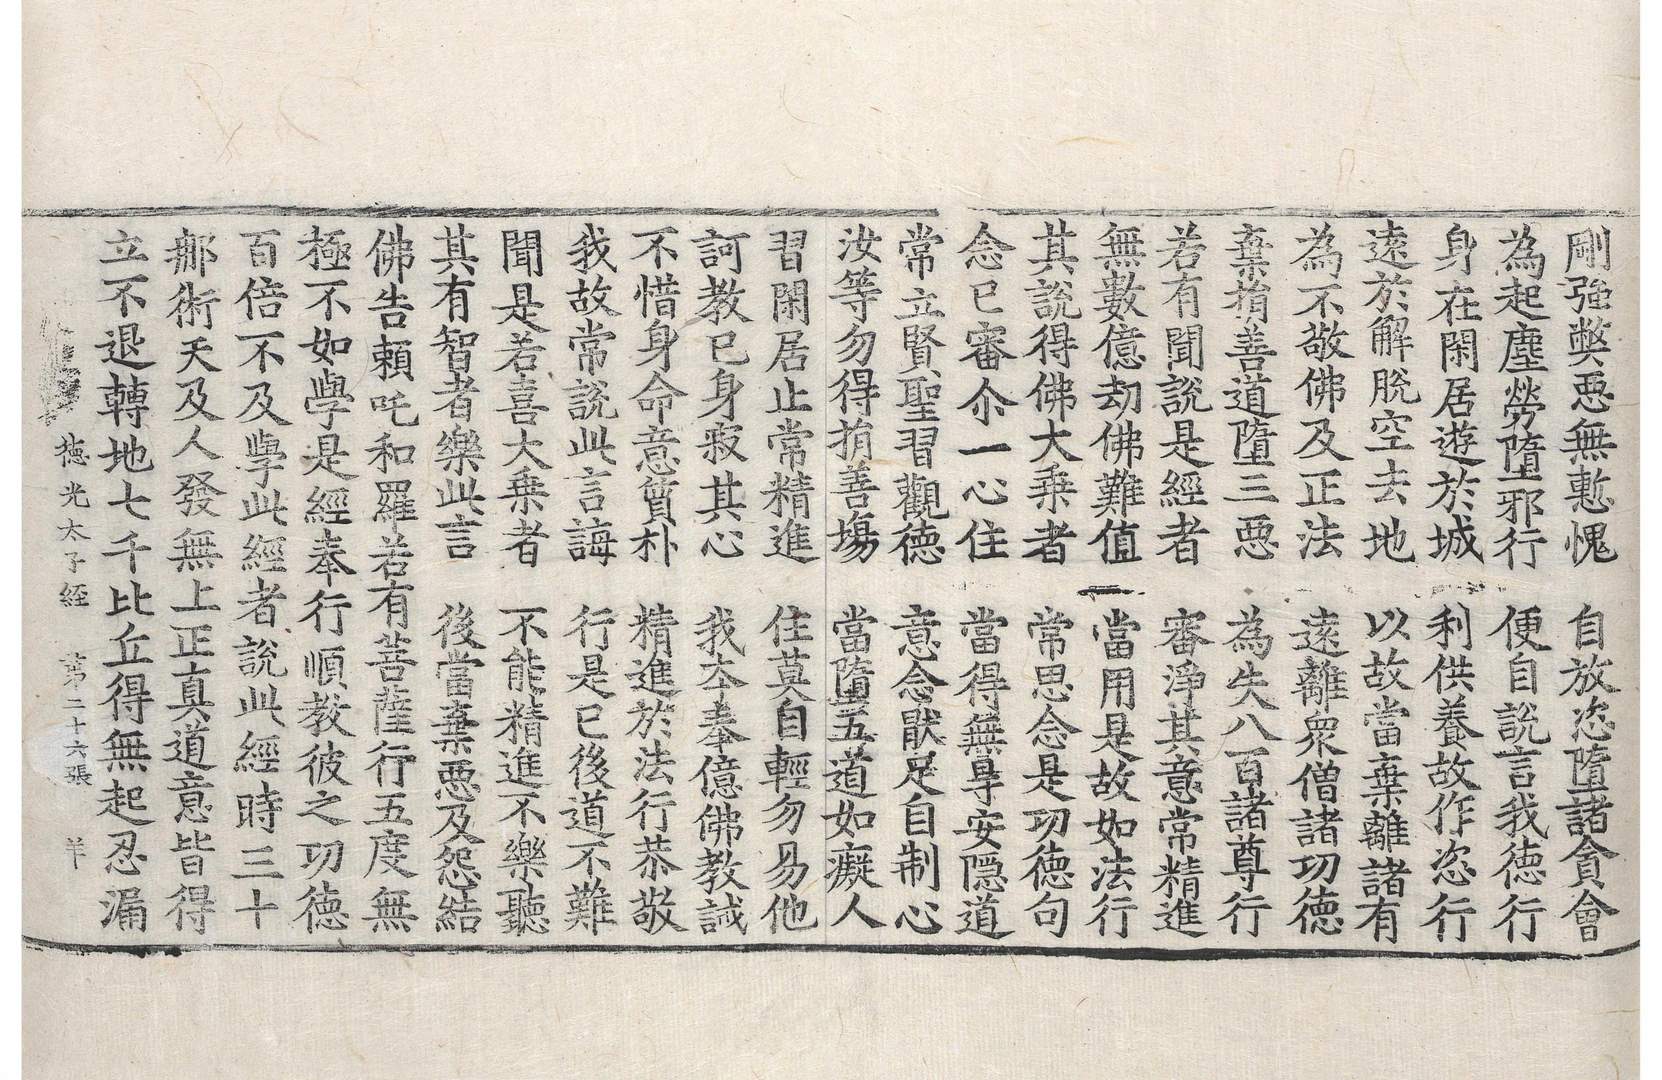 剛強弊惡無慙愧　自放恣墮諸貪會
為起塵勞墮邪行　便自說言我德行
身在閑居遊於城　利供養故作恣行
遠於解脫空去地　以故當棄離諸有
為不敬佛及正法　遠離衆僧諸功德
棄捐善道墮三惡　為失八百諸尊行
若有聞說是經者　審淨其意常精進
無數億劫佛難值　當用是故如法行
其說得佛大乗者　常思念是功德句
念已審尒一心住　當得無㝵安隱道
常立賢聖習觀德　意念猒足自制心
汝等勿得捐善塲　當墮五道如癡人
習閑居止常精進　住莫自輕勿易他
訶教已身寂其心　我夲奉億佛教誡
不惜身命意質朴　精進於法行恭敬
我故常說此言誨　行是已後道不難
聞是若喜大乗者　不能精進不樂聽
其有智者樂此言　後當棄惡及怨結
佛告賴吒和羅若有菩薩行五度無
極不如學是經奉行順教彼之功德
百倍不及學此經者說此經時三十
那術天及人發無上正真道意皆得
立不退轉地七千比丘得無起忍漏
德光太子経　第二十六張　羊